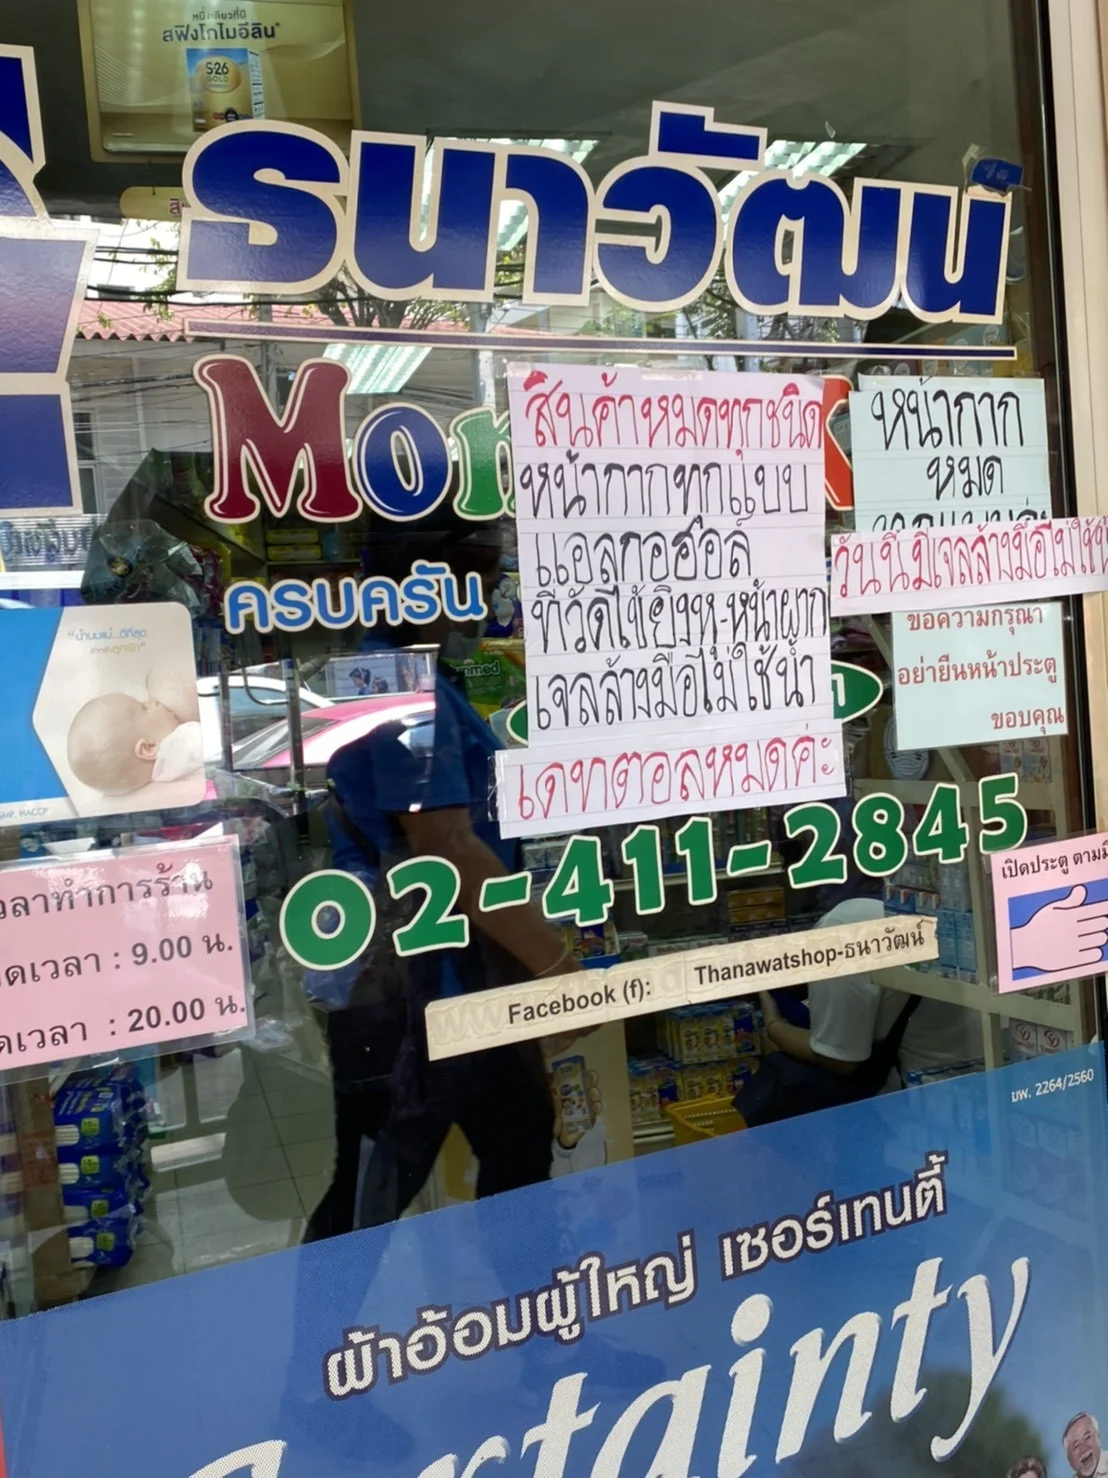 หนึ่งเดียวที่มี
สฟิงโกไมอีลิน
S-26
GOLD
ธนาวัฒน์
Mom
ครบครัน
สินค้าหมดทุกชนิด
หน้ากากทุกแบบ
แอลกอฮอล์
ที่วัดไข้ยิงหู-หน้าผาก
เจลล้างมือไม่ใช้น้ำ
เดทตอลหมดค่ะ
หน้ากาก
หมด
วันนี้มีเจลล้างมือไม่ใช้
ขอความกรุณา
อย่ายืนหน้าประตู
ขอบคุณ
"นมแม่...ดีที่สุด
สำหรับลูกรัก"
GMP, HACCP
02-411-2845
เวลาทำการร้าน
เวลา : 9.00 น.
เวลา : 20.00 น.
Facebook (f): Thanawatshop-ธนาวัฒน์
เปิดประตู ตาม
ฆพ. 2264/2560
ผ้าอ้อมผู้ใหญ่ เซอร์เทนตี้
Certainty